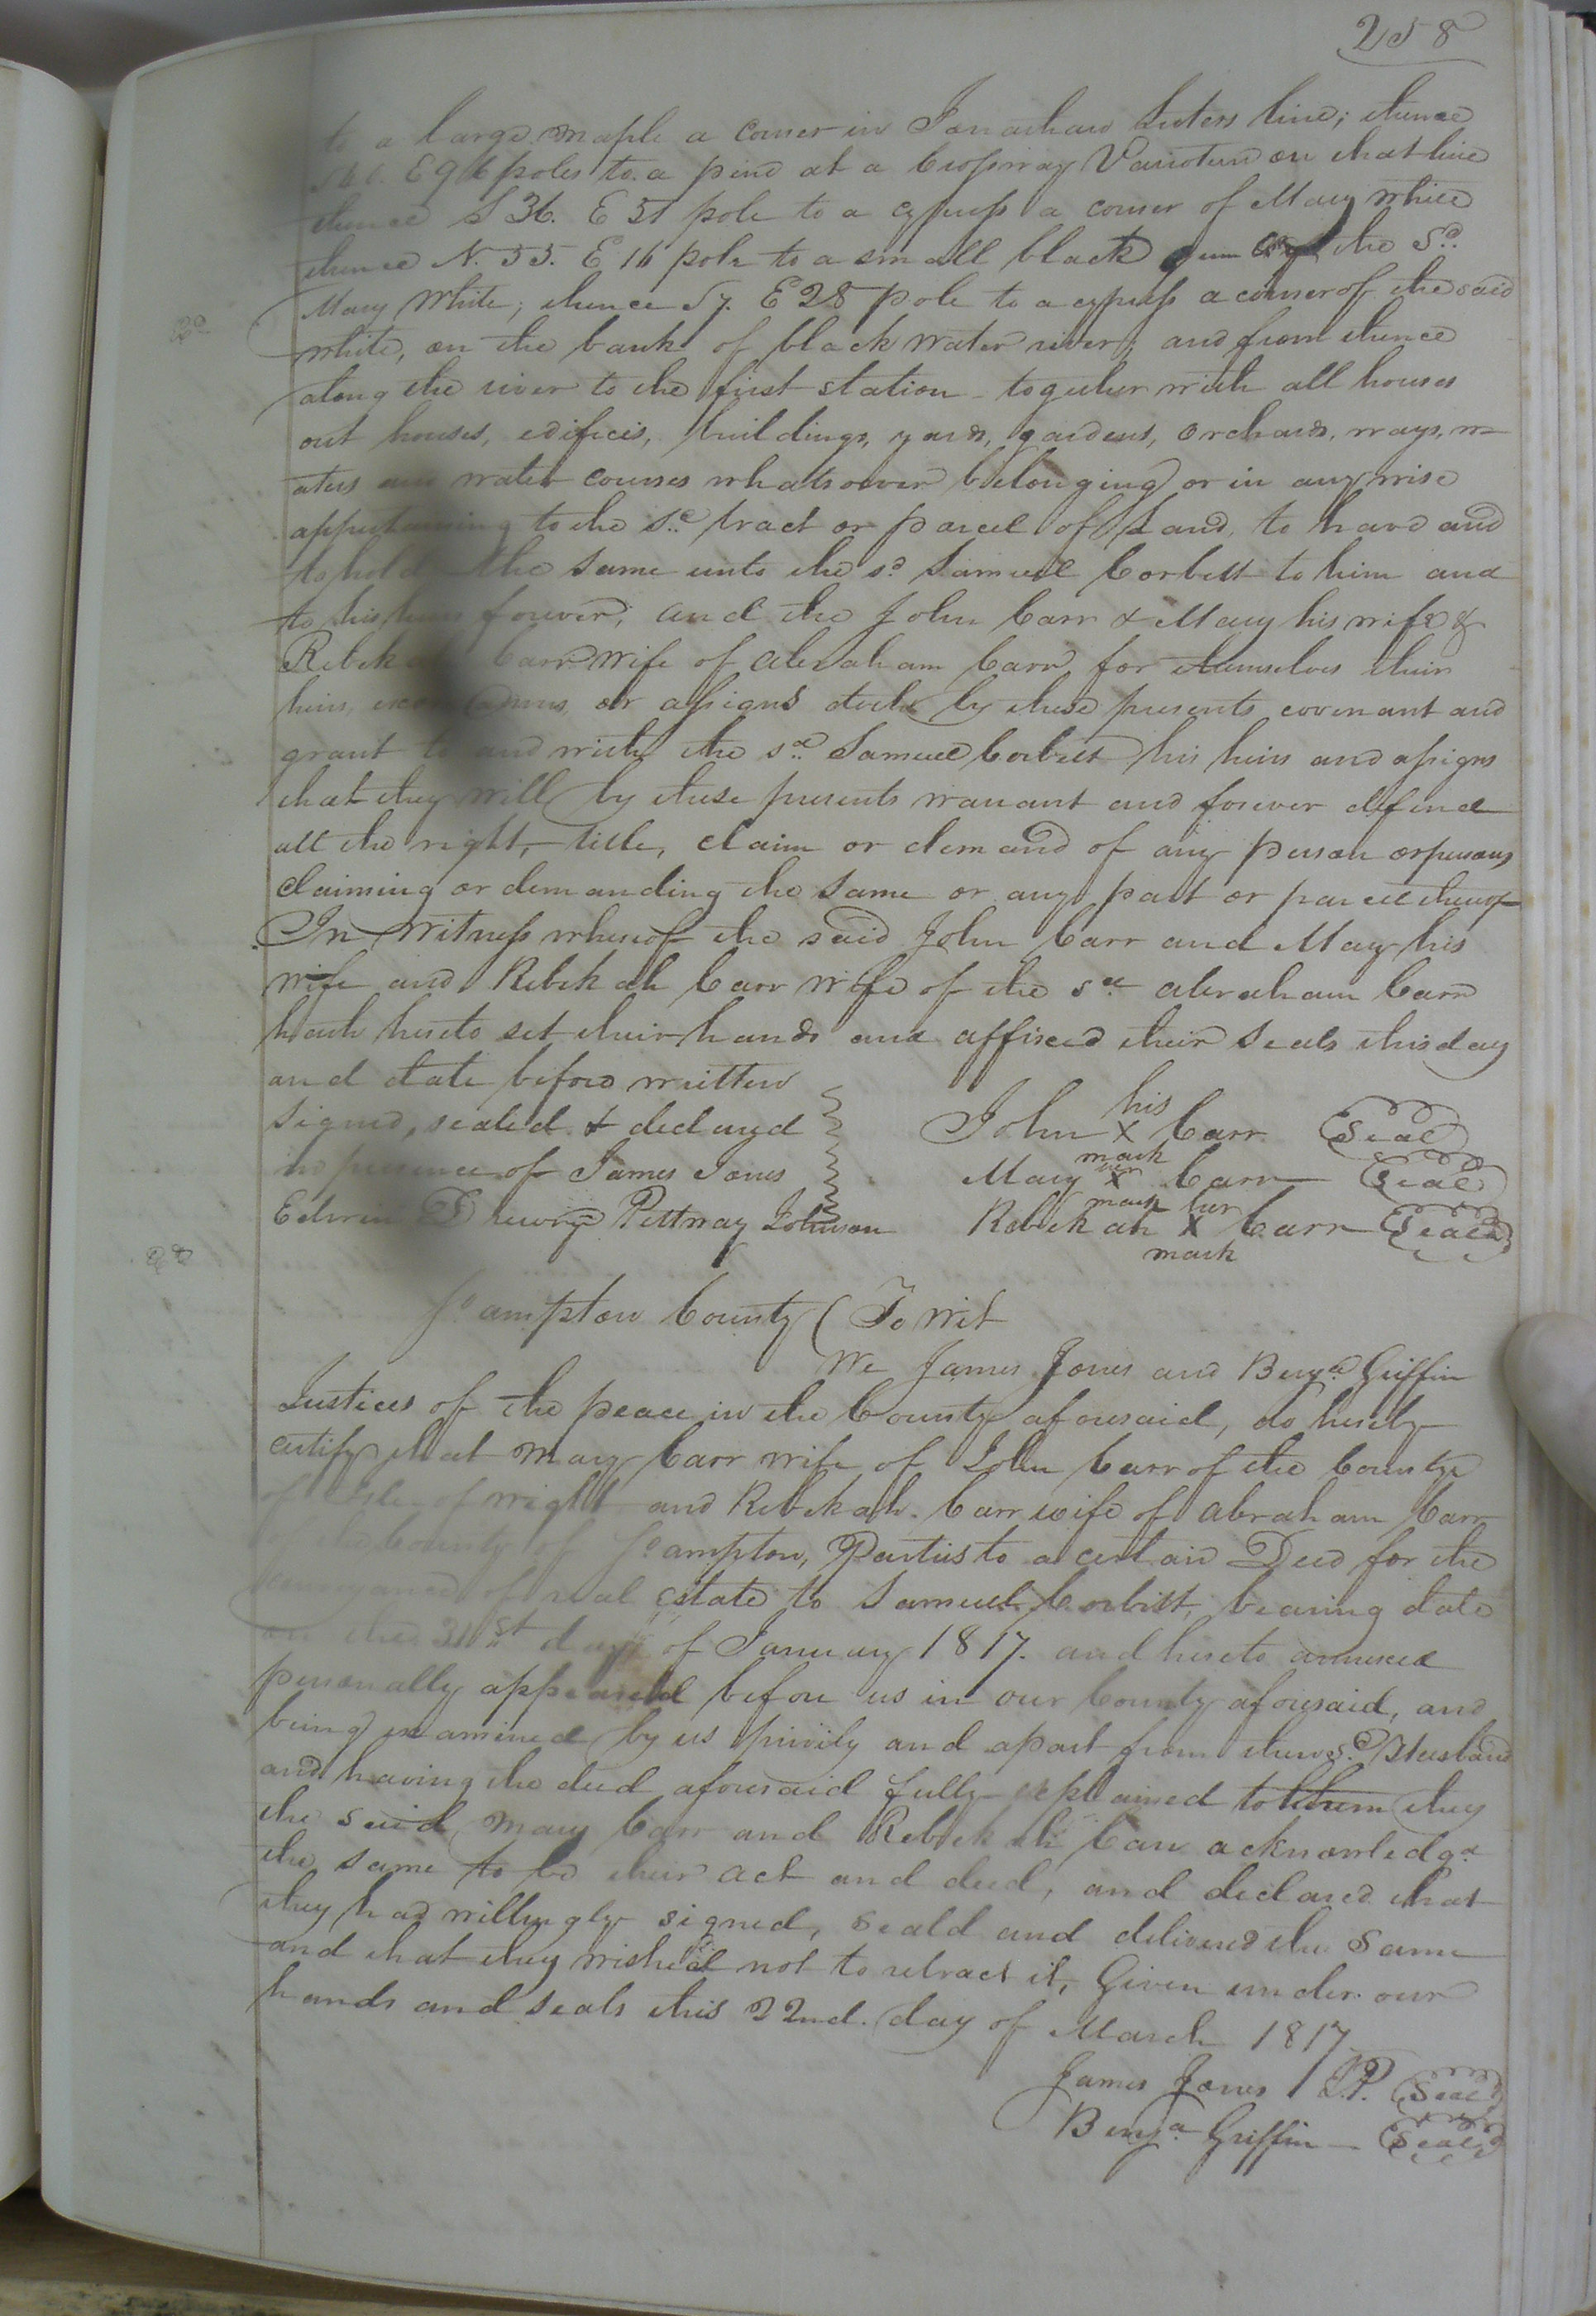 258
to a large maple a corner in Jonathan Luters line; thence
E 96 poles to a pine at a Crossway on that line
thence S 36. E 51 pole to a cypress a corner of Mary white
thence N. 55. E 16 pole to a small black gum of the Sd.
Mary White; thence S 7. E 28 pole to a cypress a corner of the said
white, on the bank of black water river; and from thence
along the river to the first station - together with all houses
out houses, edifices, buildings, yards, gardens, orchards, ways, w-
aters and water courses whatsoever belonging or in any wise
appertaining to the sd. tract or parcel of Land, to have and
to hold the same unto the sd. Samuel Corbett to him and
to his heirs forever; and the John Carr & Mary his wife &
Rebekah Carr wife of abraham Carr for themselves their
heirs, exors, admrs, or assigns doth by these presents covenant and
grant to and with the sd. Samuel Corbett his heirs and assigns
that they will by these presents warrant and forever defend
all the right, title, claim or demand of any person or persons
claiming or demanding the same or any part or parcel thereof
In Witness whereof the said John Carr and Mary his
wife and Rebekah Carr wife of the sd. abraham Carr
hath hereto set their hands and affixed their seals this day
and date before written
signed, sealed & declared
in presence of James Jones
Edwin Drewry Pettway Johnson
his
John X Carr Seal
mark
her
Mary X Carr Seal
mark her
Rebekah X Carr Seal
mark
So ampton County ( To wit
We James Jones and Benja Griffin
Justices of the peace in the County aforesaid, do hereby
certify that Mary Carr wife of John Carr of the County
of Isle of wight and Rebekah. Carr wife of abraham Carr
of the County of So ampton, Parties to a certain Deed for the
conveyance of real estate to Samuel Corbitt, bearing date
on the 31st day of January 1817. and hereto annexed
personally appeared before us in our County aforesaid, and
being examined by us privily and apart from their sd. Husband
and having the deed aforesaid fully explained to them they
the said Mary Carr and Rebekah Carr acknowledgd
the same to be their act and deed, and declared that
they had willingly signed, seald and delivered the same
and that they wished not to retract it, Given under our
hands and seals this 22nd. day of March 1817
James Jones J.P. Seal
Benja Griffin - Seal